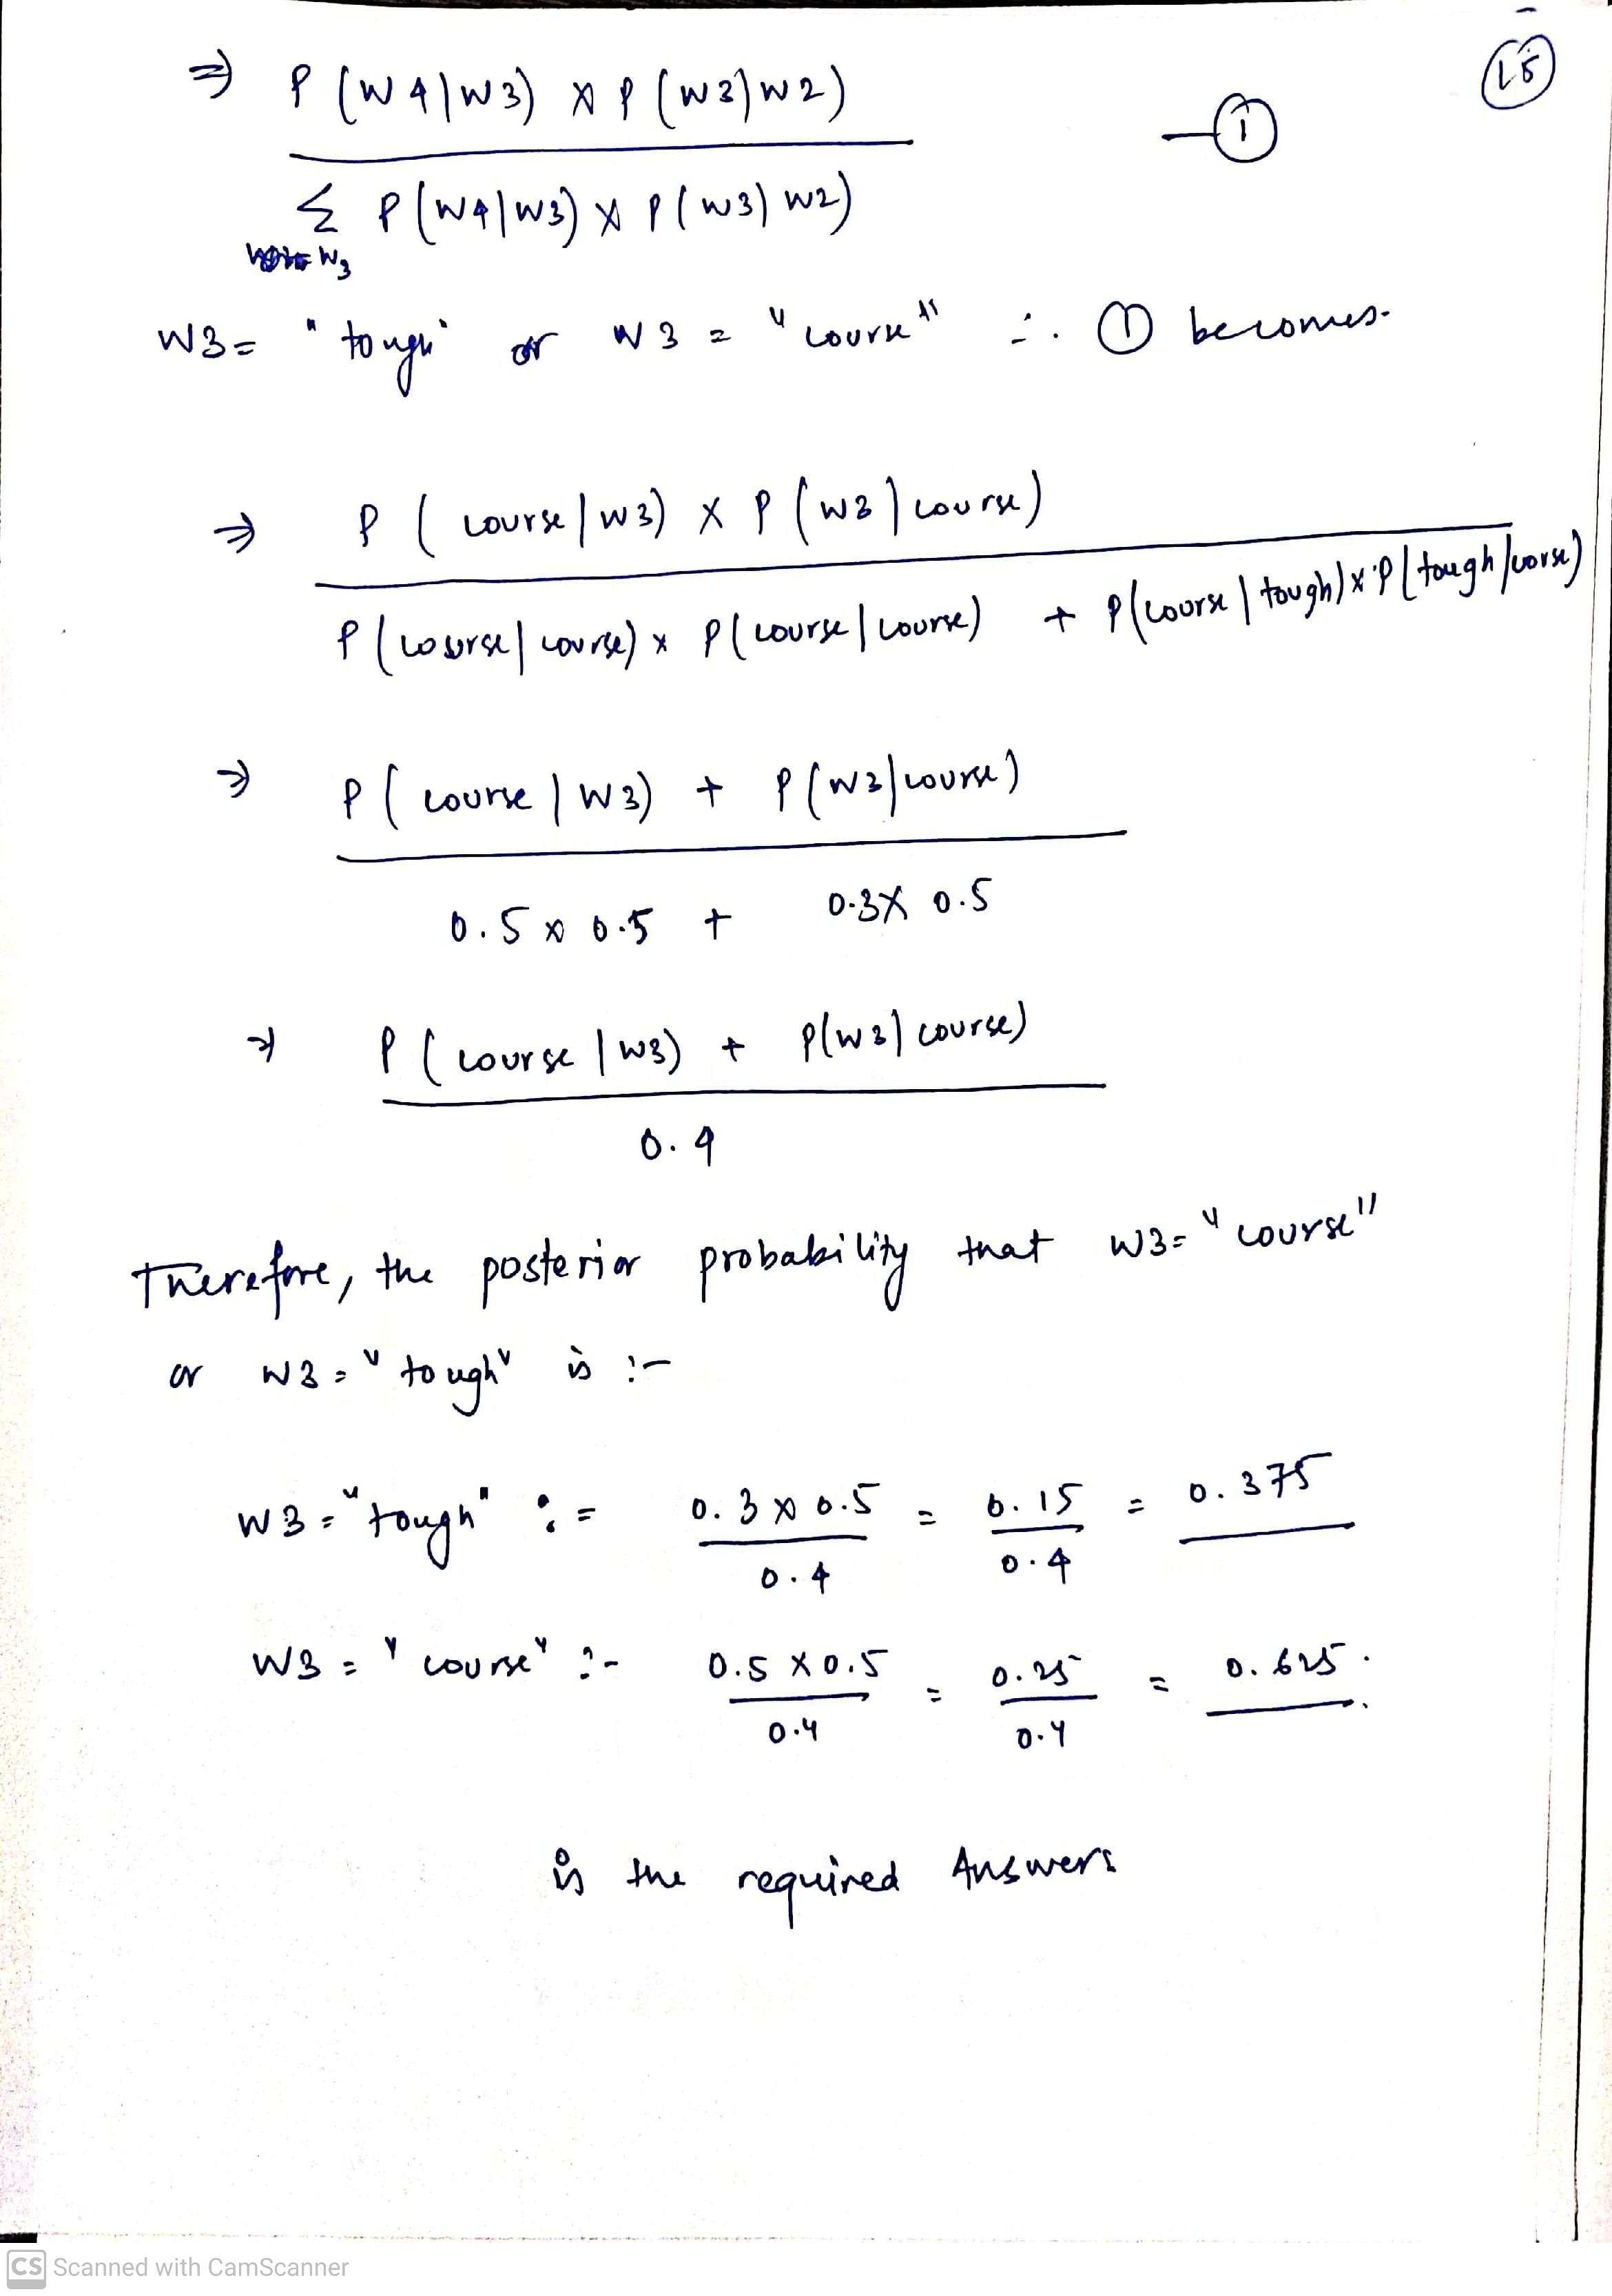 15
⇒ P (W4|W3) × P (W3|W2)
— ①
Σ P(W4|W3) × P(W3|W2)
W3
W3 = "tough" or W3 = "course" ∴ ① becomes.
⇒ P ( course | W3) × P (W3 | course)
P (course | course) × P(course | course) + P(course | tough) × P(tough | corse)
⇒ P ( course | W3) + P (W3|course)
0.5 × 0.5 + 0.3 × 0.5
⇒ P ( course | W3) + P(W3| course)
0.4
Therefore, the posterior probability that W3 = "course"
or W3 = "tough" is :-
W3 = "tough" : = 0.3 × 0.5 = 0.15 = 0.375
0.4 0.4
W3 = "course" :- 0.5 × 0.5 = 0.25 = 0.625.
0.4 0.4
is the required Answers
CS Scanned with CamScanner